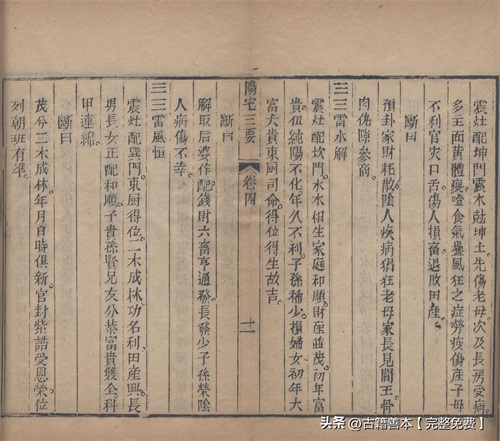 震灶配坤門震木尅坤土先虧老母次及長房受病
多主面黃體瘦噎食氣蠱風狂之症勞疫傷產子母
不利官灾口舌傷人損畜退敗田產
斷曰
預卦家財耗散陰人疾病猖狂老母家長見閻王骨
肉仇隙參商
雷水解
震灶配坎門水木相生家庭和順財產並茂初年富
貴但純陽不化年久不利子孫稀少損婦女初年大
富大貴東厨司命得位得生故吉
陽宅三要 卷四 十一
斷曰
解取后婆作配錢財六畜亨通務長務少子孫榮陰
人病傷不幸
雷風恒
震灶配巽門東厨得位二木成林功名利田產興長
男長女正配和順子貴孫賢兄友分恭富貴雙全科
甲連綿
斷曰
茂分二木成林年月日時俱新官封紫誥受恩榮位
列朝班有準
头条 @古籍善本【完整免费】